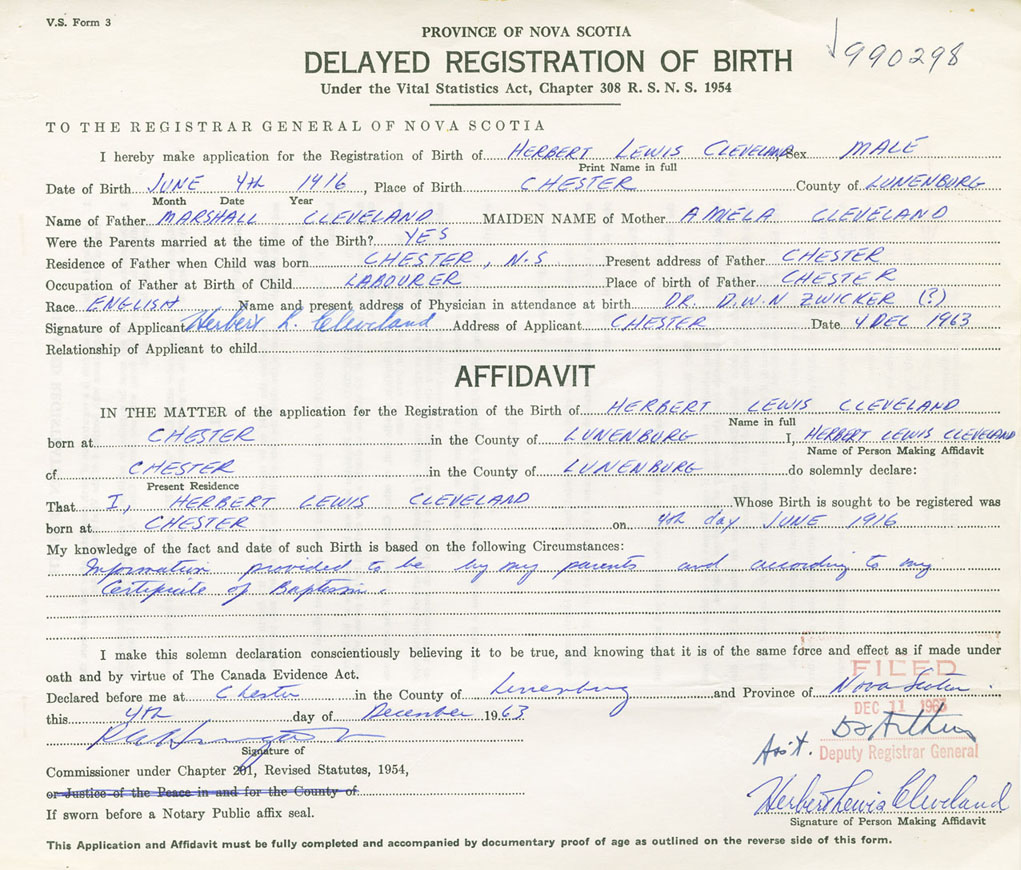 V.S. Form 3
PROVINCE OF NOVA SCOTIA
990298
DELAYED REGISTRATION OF BIRTH
Under the Vital Statistics Act, Chapter 308 R. S. N. S. 1954
TO THE REGISTRAR GENERAL OF NOVA SCOTIA
I hereby make application for the Registration of Birth of HERBERT LEWIS CLEVELAND Sex MALE
Print Name in full
Date of Birth JUNE 4th 1916, Place of Birth CHESTER County of LUNENBURG
Month Date Year
Name of Father MARSHALL CLEVELAND MAIDEN NAME of Mother AMELA CLEVELAND
Were the Parents married at the time of the Birth? YES
Residence of Father when Child was born CHESTER, N.S Present address of Father CHESTER
Occupation of Father at Birth of Child LABOURER Place of birth of Father CHESTER
Race ENGLISH Name and present address of Physician in attendance at birth DR. D.W.N ZWICKER (?)
Signature of Applicant Herbert L. Cleveland Address of Applicant CHESTER Date 4 DEC 1963
Relationship of Applicant to child
AFFIDAVIT
IN THE MATTER of the application for the Registration of the Birth of HERBERT LEWIS CLEVELAND
Name in full
born at CHESTER in the County of LUNENBURG I, HERBERT LEWIS CLEVELAND
Name of Person Making Affidavit
of CHESTER in the County of LUNENBURG do solemnly declare:
Present Residence
That I, HERBERT LEWIS CLEVELAND Whose Birth is sought to be registered was
born at CHESTER on 4th day JUNE 1916
My knowledge of the fact and date of such Birth is based on the following Circumstances:
Information provided to be by my parents and according to my
Certificate of Baptism.
I make this solemn declaration conscientiously believing it to be true, and knowing that it is of the same force and effect as if made under
oath and by virtue of The Canada Evidence Act.
FILED
Declared before me at Chester in the County of Lunenburg and Province of Nova Scotia
DEC 11 1963
this 4th day of December 1963
Signature of
Asst. Deputy Registrar General
Commissioner under Chapter 201, Revised Statutes, 1954,
or Justice of the Peace in and for the County of
Herbert Lewis Cleveland
If sworn before a Notary Public affix seal.
Signature of Person Making Affidavit
This Application and Affidavit must be fully completed and accompanied by documentary proof of age as outlined on the reverse side of this form.